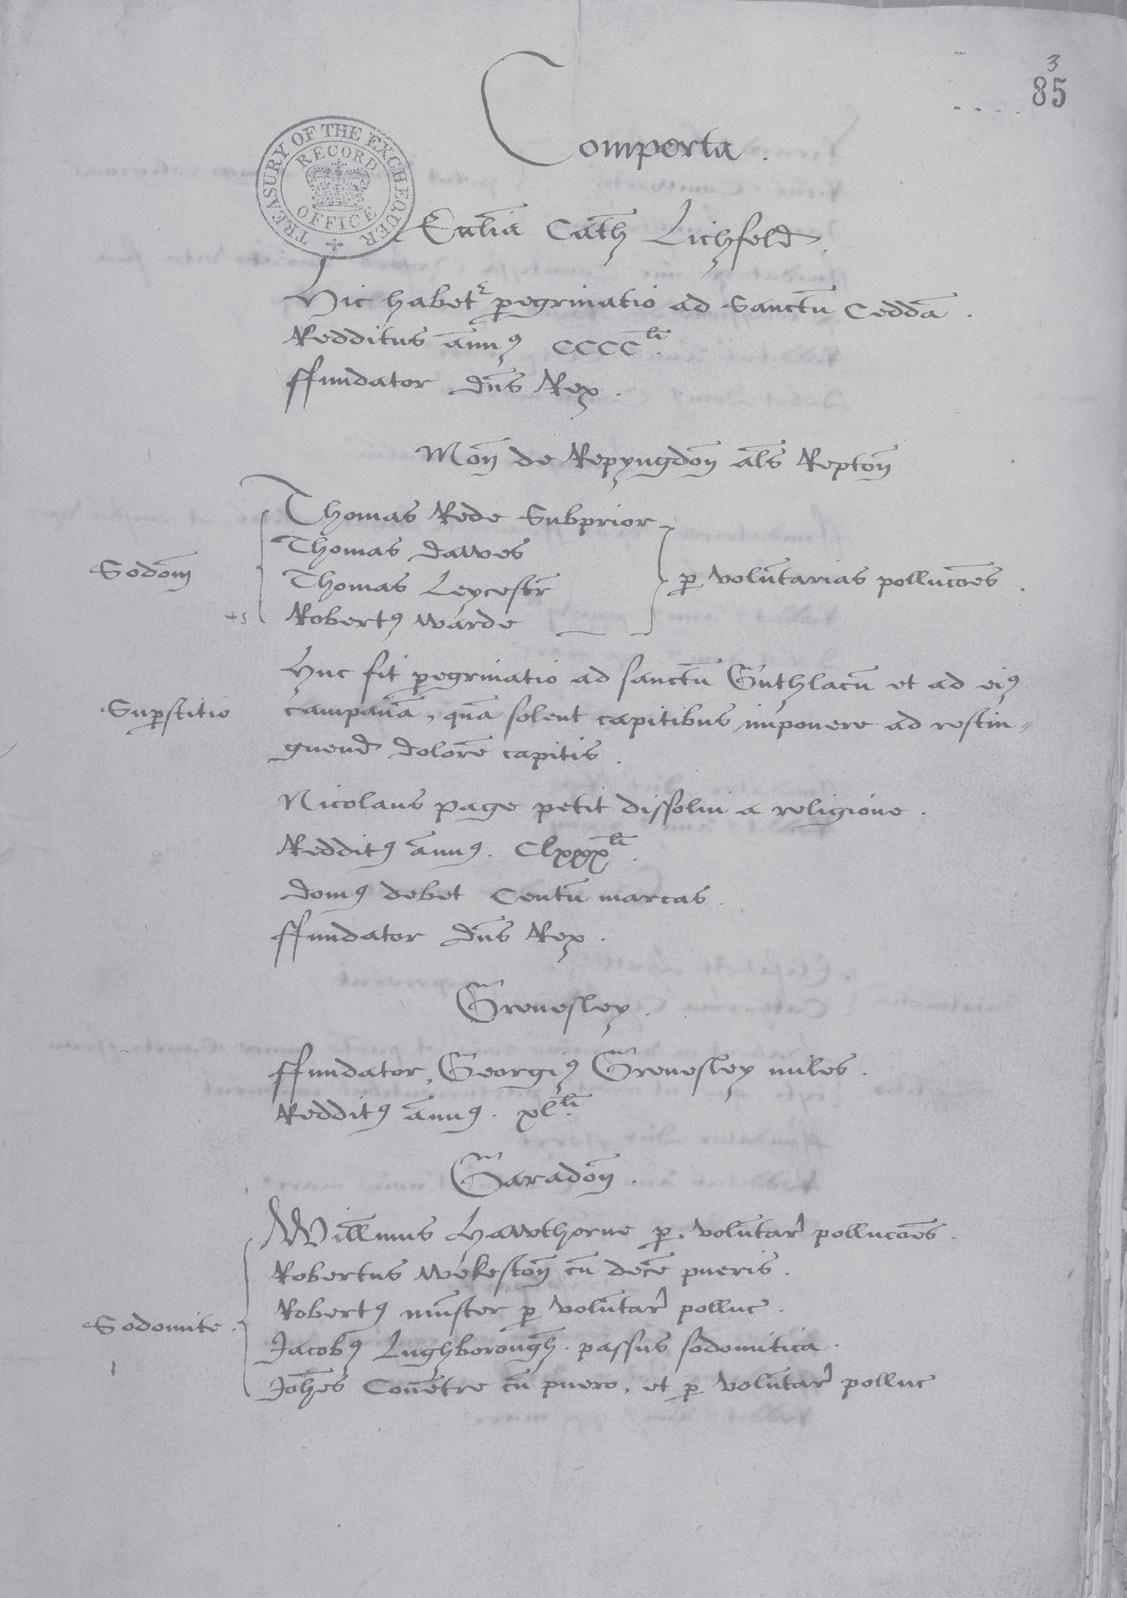 3
85
Comperta .
TREASURY OF THE EXCHEQUER
RECORD OFFICE
Ecclia Cath Lichfeld .
Hic habet peregrinatio ad Sanctu Cedda .
Redditus annu9 CCCC li .
ffundator dns Rex .
Mon de Repyngdon als Repton
Thomas Rede Subprior
Thomas Dawes
Sodom
p voluntarias pollucoes .
Thomas Leycestr
Robert9 Warde
Huc fit peregrinatio ad sanctu Guthlacu et ad ei9
Supstitio
campana, qua solent capitibus imponere ad restin=
guend dolore capitis .
Nicolaus Page petit dissolui a religione .
Reddit9 annu9 . Clxxx li .
Dom9 debet Centu marcas .
ffundator dns Rex .
Gresley .
ffundator, Georgi9 Gresley miles .
Reddit9 annu9 . xl li .
Garadon .
Willmus Hawthorne p . voluntar pollucoes .
Robertus Wekeston cu dece pueris .
Robert9 Munster p voluntar polluc .
Sodomite .
Jacob9 Lughborough . passus sodomitica .
Johes Couentre cu puero, et p voluntar polluc